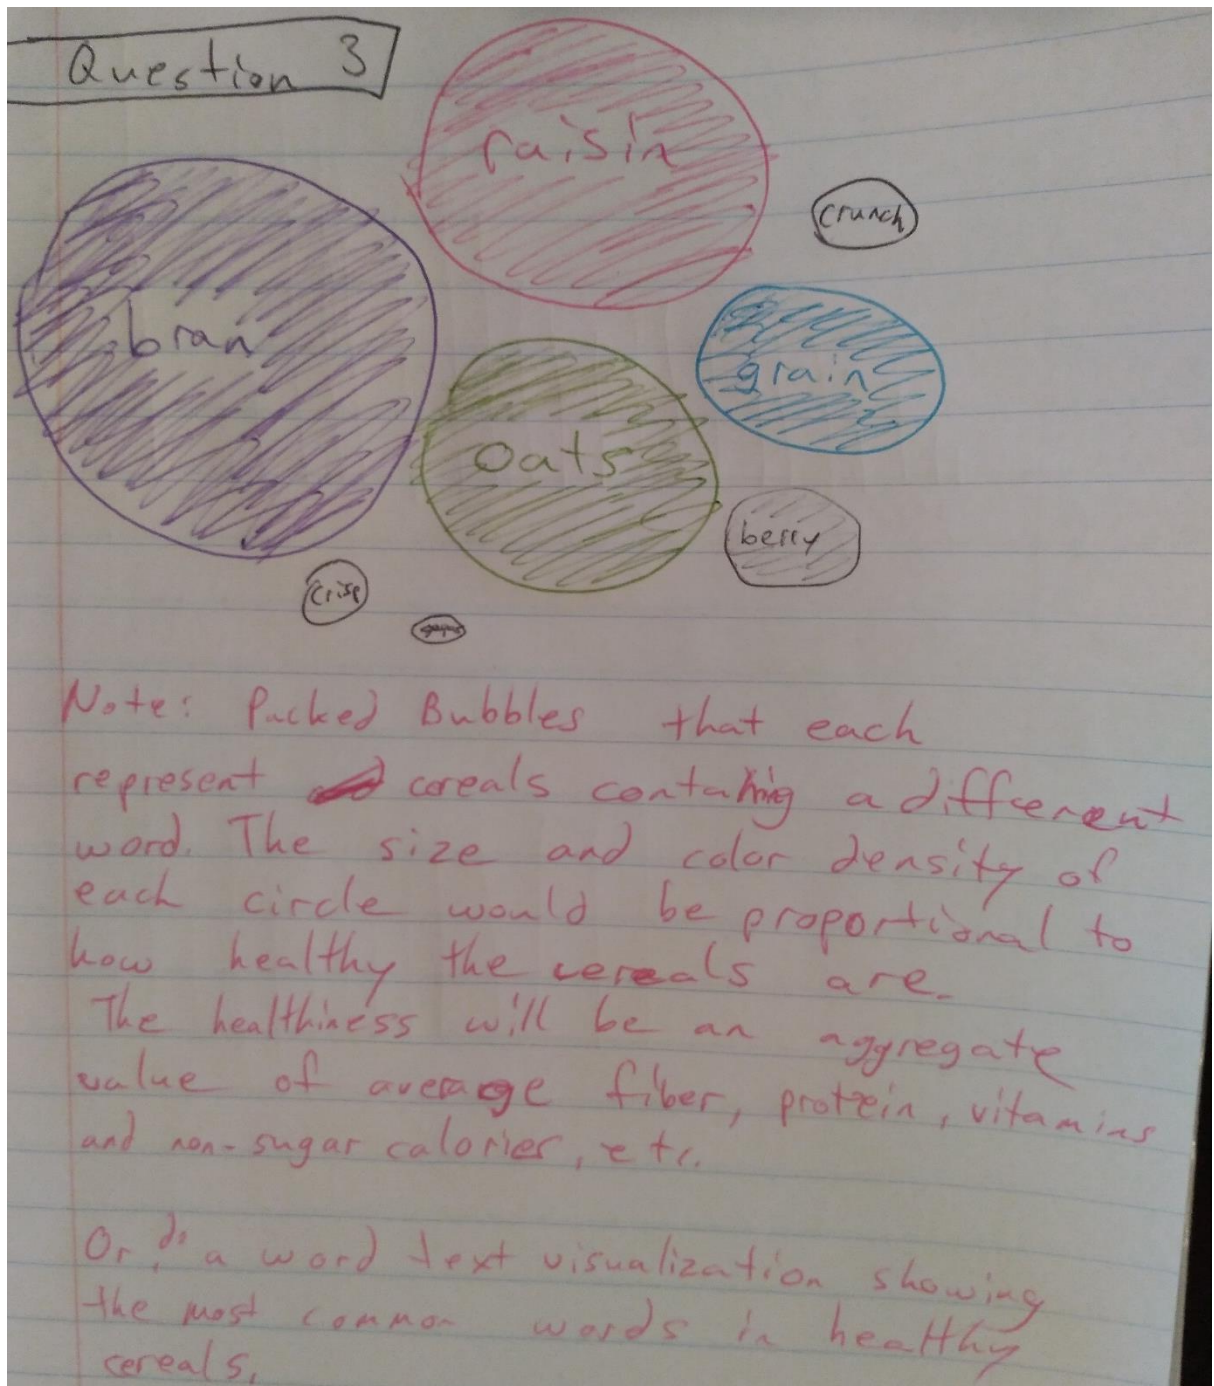 Question 3
raisin
crunch
bran
grain
oats
berry
crisp
Note: Packed Bubbles that each
represent cereals containing a different
word. The size and color density of
each circle would be proportional to
how healthy the cereals are.
The healthiness will be an aggregate
value of average fiber, protein, vitamins
and non-sugar calories, etc.
Or, do a word text visualization showing
the most common words in healthy
cereals.